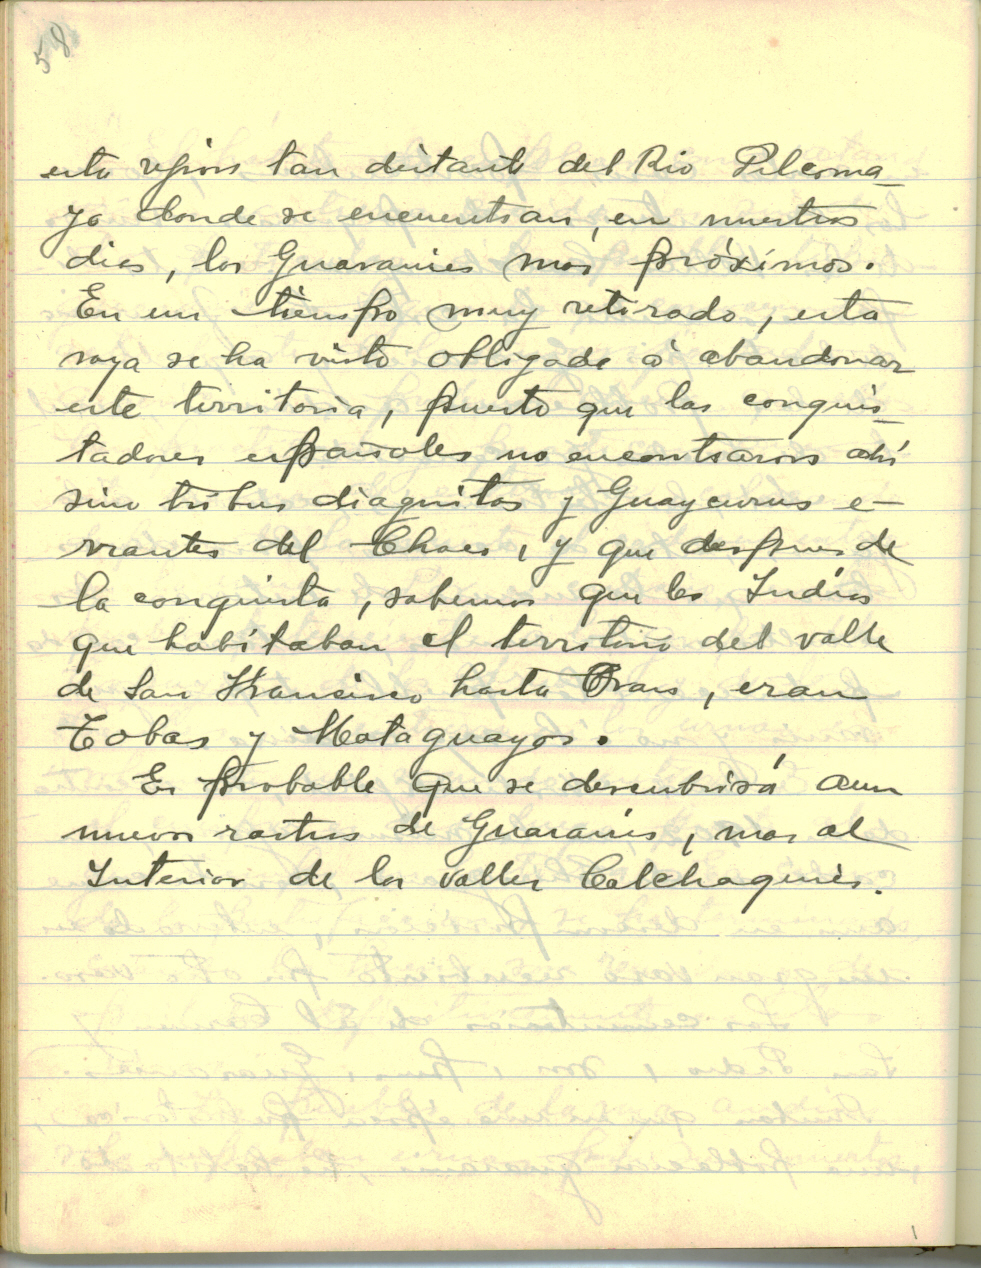 58
esta region tan distante del Rio Pilcoma-
yo donde se encuentran, en nuestros
dias, los Guaranies mas próximos.
En un tiempo muy retirado, esta
raza se ha visto obligada á abandonar
este territorio, puesto que los conquis-
tadores españoles no encontraron ahí
sino tribus diaguitas y Guaycurus e-
rrantes del Chaco, y que despues de
la conquista, sabemos que los Indios
que habitaban el territorio del valle
de San Francisco hasta Oran, eran
Tobas y Mataguayos.
Es probable que se descubrirá aun
nuevos rastros de Guaranis, mas al
Interior de los valles Calchaquies.